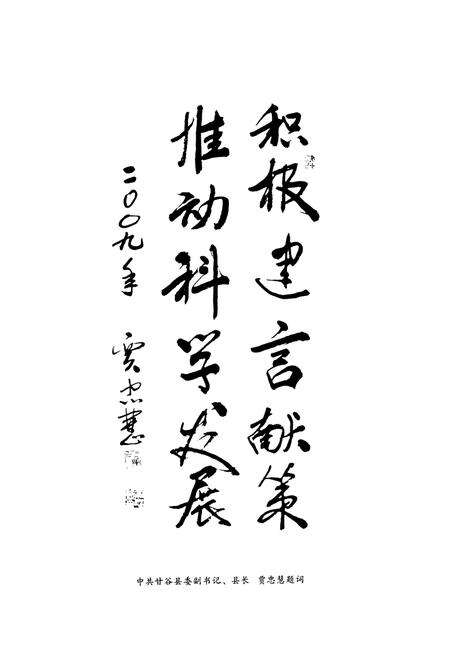 积极建言献策
推动科学发展
二〇〇九年 贾忠慧
中共甘谷县委副书记、县长 贾忠慧题词